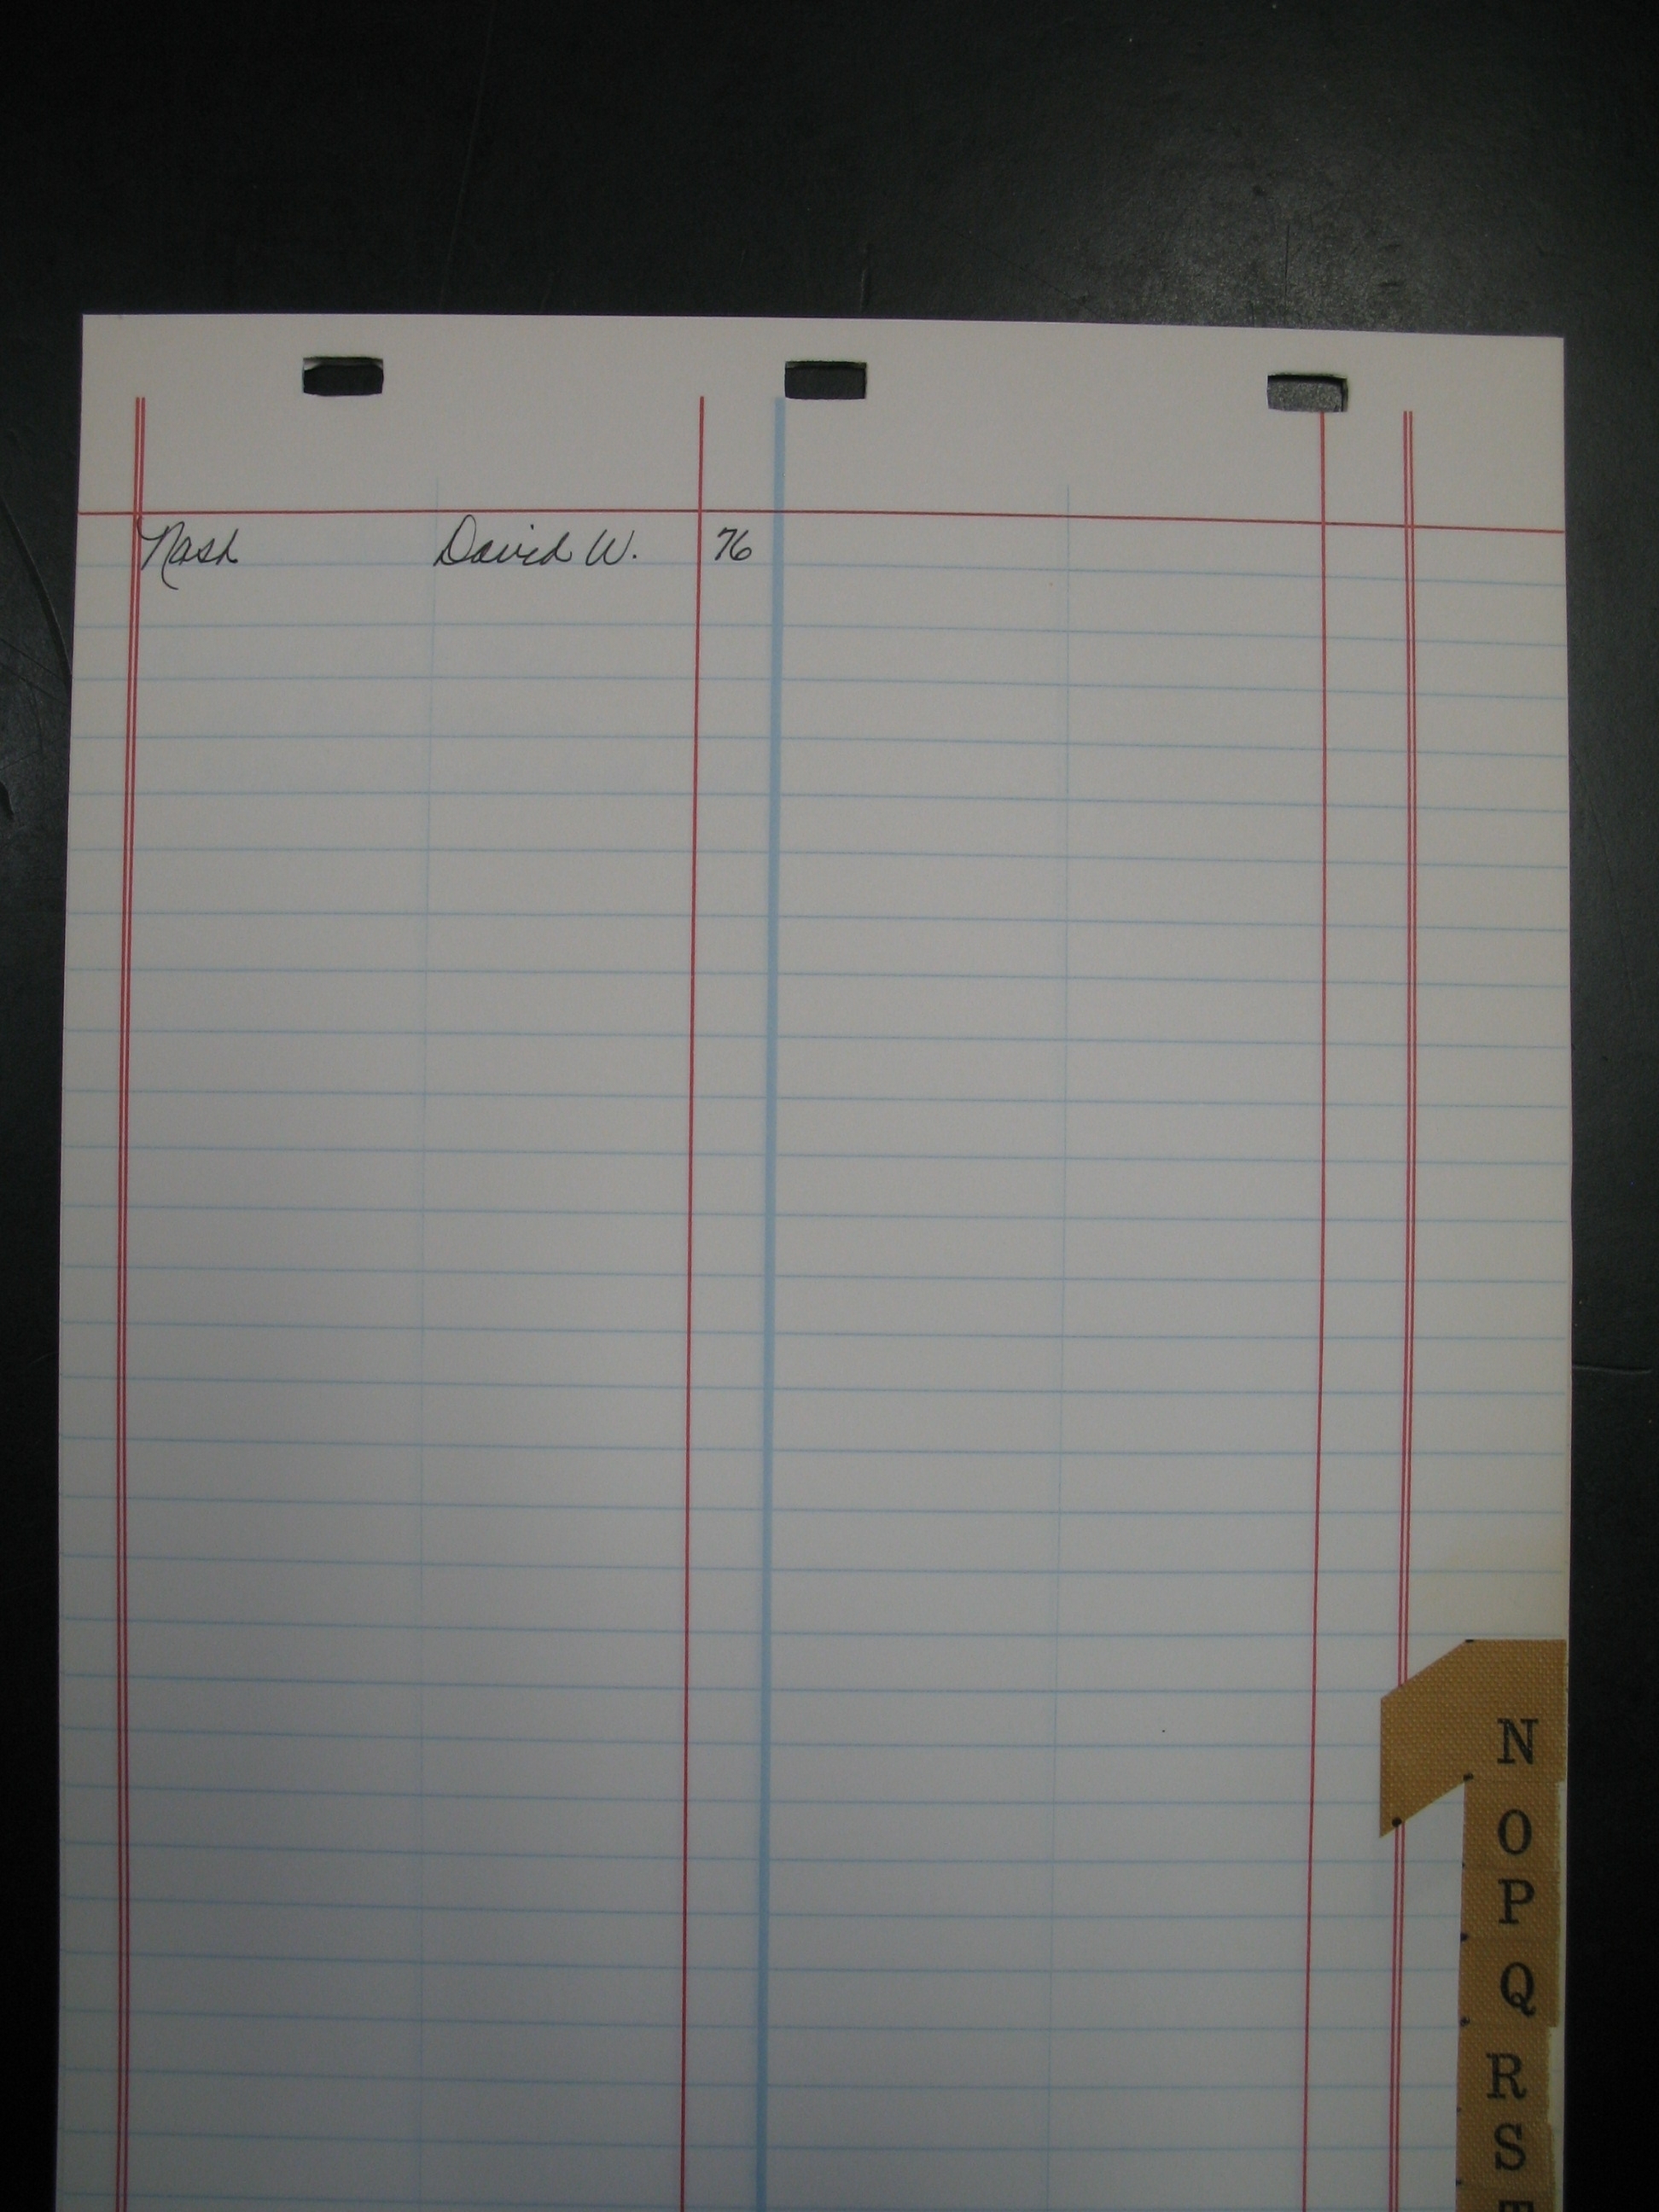 Nash David W. 76
N
O
P
Q
R
S